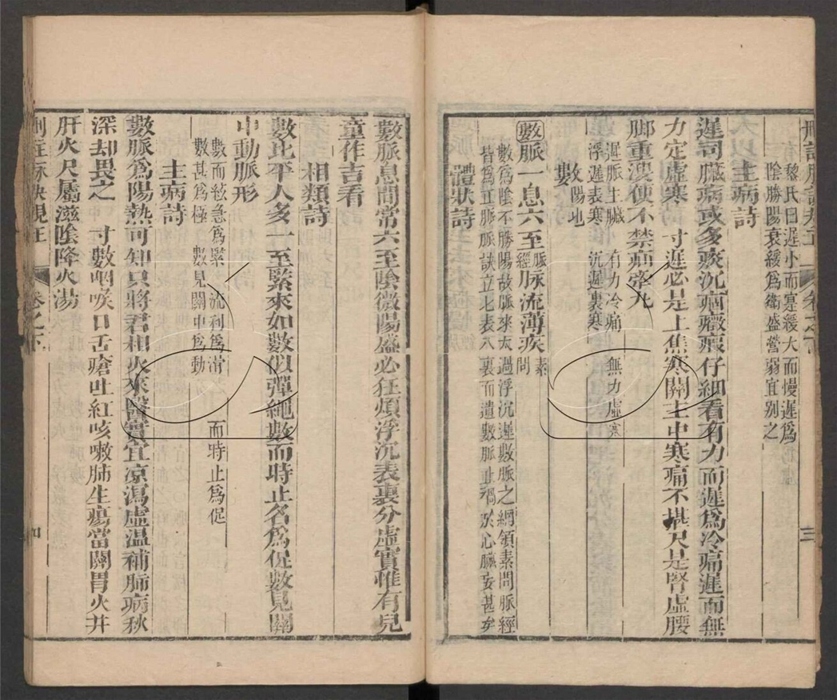 黎氏曰遲小而寔緩大而慢遲為
陰勝陽衰緩為衛盛營弱宜別之
三
主病詩
遲司臟病或多痰沉痼癥瘕仔細看有力而遲為冷痛遲而無
力定虛寒 寸遲必是上焦寒關主中寒痛不堪尺是腎虛腰
脚重溲便不禁疝牽丸
遲脈主臟 有力冷痛 無力虛寒
浮遲表寒 沉遲裏寒
數 陽也
數脈一息六至 脈經 脈流薄疾 素問
數為陰不勝陽故脈來太過浮沉遲數脈之綱領素問脈經
皆為正脈脈訣立七表八裏而遺數脈止 於心臟妄甚矣
體狀詩
數脈息間常六至陰微陽盛必狂煩浮沉表裏分虛實惟有兒
童作吉看
相類詩
數比平人多一至緊來如數似彈繩數而時止名為促數見關
中動脈形
數而弦急為緊 流利為滑 而時止為促
數甚為極 數見關中為動
主病詩
數脈為陽熱可知只將君相火來醫實宜凉瀉虛溫補肺病秋
深却畏之 寸數咽喉口舌瘡吐紅咳嗽肺生瘍當關胃火并
肝火尺屬滋陰降火湯
卷之下
四